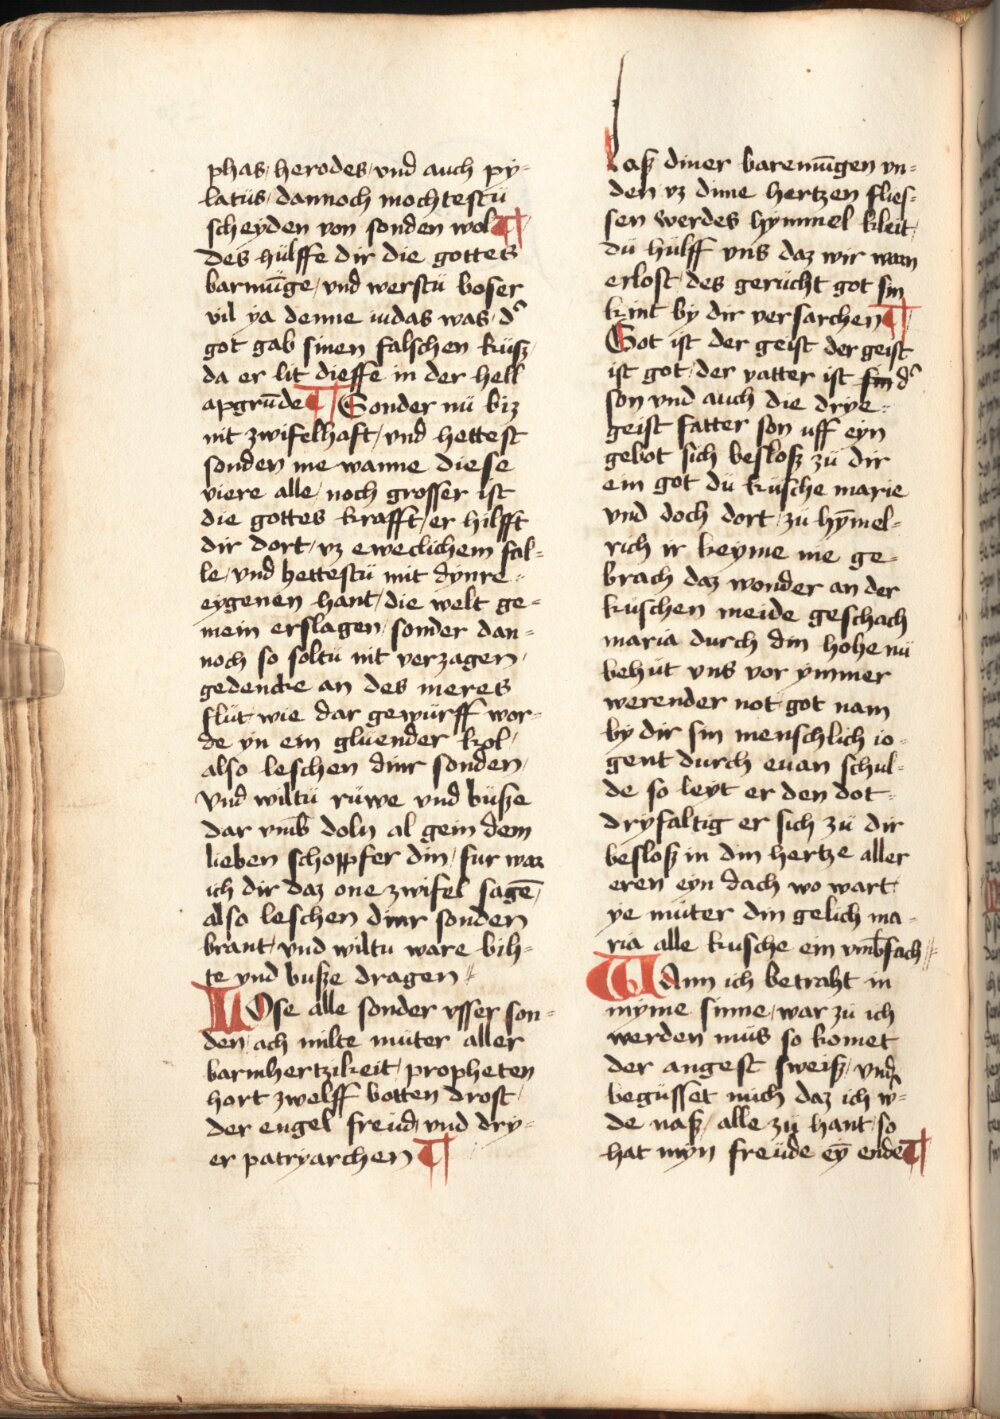 phas, herodes, vnd auch py-
latüs, dannoch mochtestü
scheyden von sonden wol ¶
des hülffe dir die gottes
barmūge, vnd werstü boser
vil ya denne iudas was, dʾ
got gab sinen falschen küsz,
da er lit dieffe in der hell
apgrūde ¶ Sonder nü biz
nit zwifelhaft, vnd hettest
sonden me wanne diese
viere alle, noch grosser ist
die gottes krafft, er hilfft
dir dort, vz eweclichem fal-
le, vnd hettestü mit dynre
eygenen hant, die welt ge-
mein erslagen, sonder dan-
noch so soltü nit verzagen,
gedencke an des meres
flüt, wie dar gewürff wor-
de yn ein gluender kol,
also leschen dinr sonden,
vnd wiltü rüwe vnd büsze
dar vmb doln al gein dem
lieben schoppfer din, fur war
ich dir daz one zwifel sagē,
also leschen dinr sonden
brant, vnd wiltu ware bih-
te vnd busze dragen
LOse alle sonder vsser son-
den, ach milte müter aller
barmhertzikeit, propheten
hort zwelff botten drost,
der engel freüd, vnd dry-
er patryarchen ¶
Lasz diner baremūgen vn-
den vz dime hertzen flies-
sen werdes hymmel kleit,
dü hülff vns daz wir warn
erlost, des gerücht got sin
kint by dir versarchen ¶
Got ist der geist der geist
ist got, der vatter ist sin dʾ
son vnd auch die drye
geist fatter son uff eyn
gebot sich beslosz zü dir
ein got dü küsche marie
vnd doch dort, zü hȳmel-
rich ir keyme me ge-
brach daz wonder an der
küschen meide geschach
maria durch din hohe nü
behüt vns vor ymmer
werender not, got nam
by dir sin menschlich io-
gent durch euan schul-
de so leyt er den dot
dryfaltig er sich zü dir
beslosz in din hertze aller
eren eyn dach wo wart
ye müter din gelich ma-
ria alle kusche ein vmbfach
WAnn ich betraht in
myme sinne, war zü ich
werden müs so komet
der angest sweisz, vnd
begüsset mich daz ich w-
de nasz, alle zü hant, so
hat myn freüde eȳ ende ¶